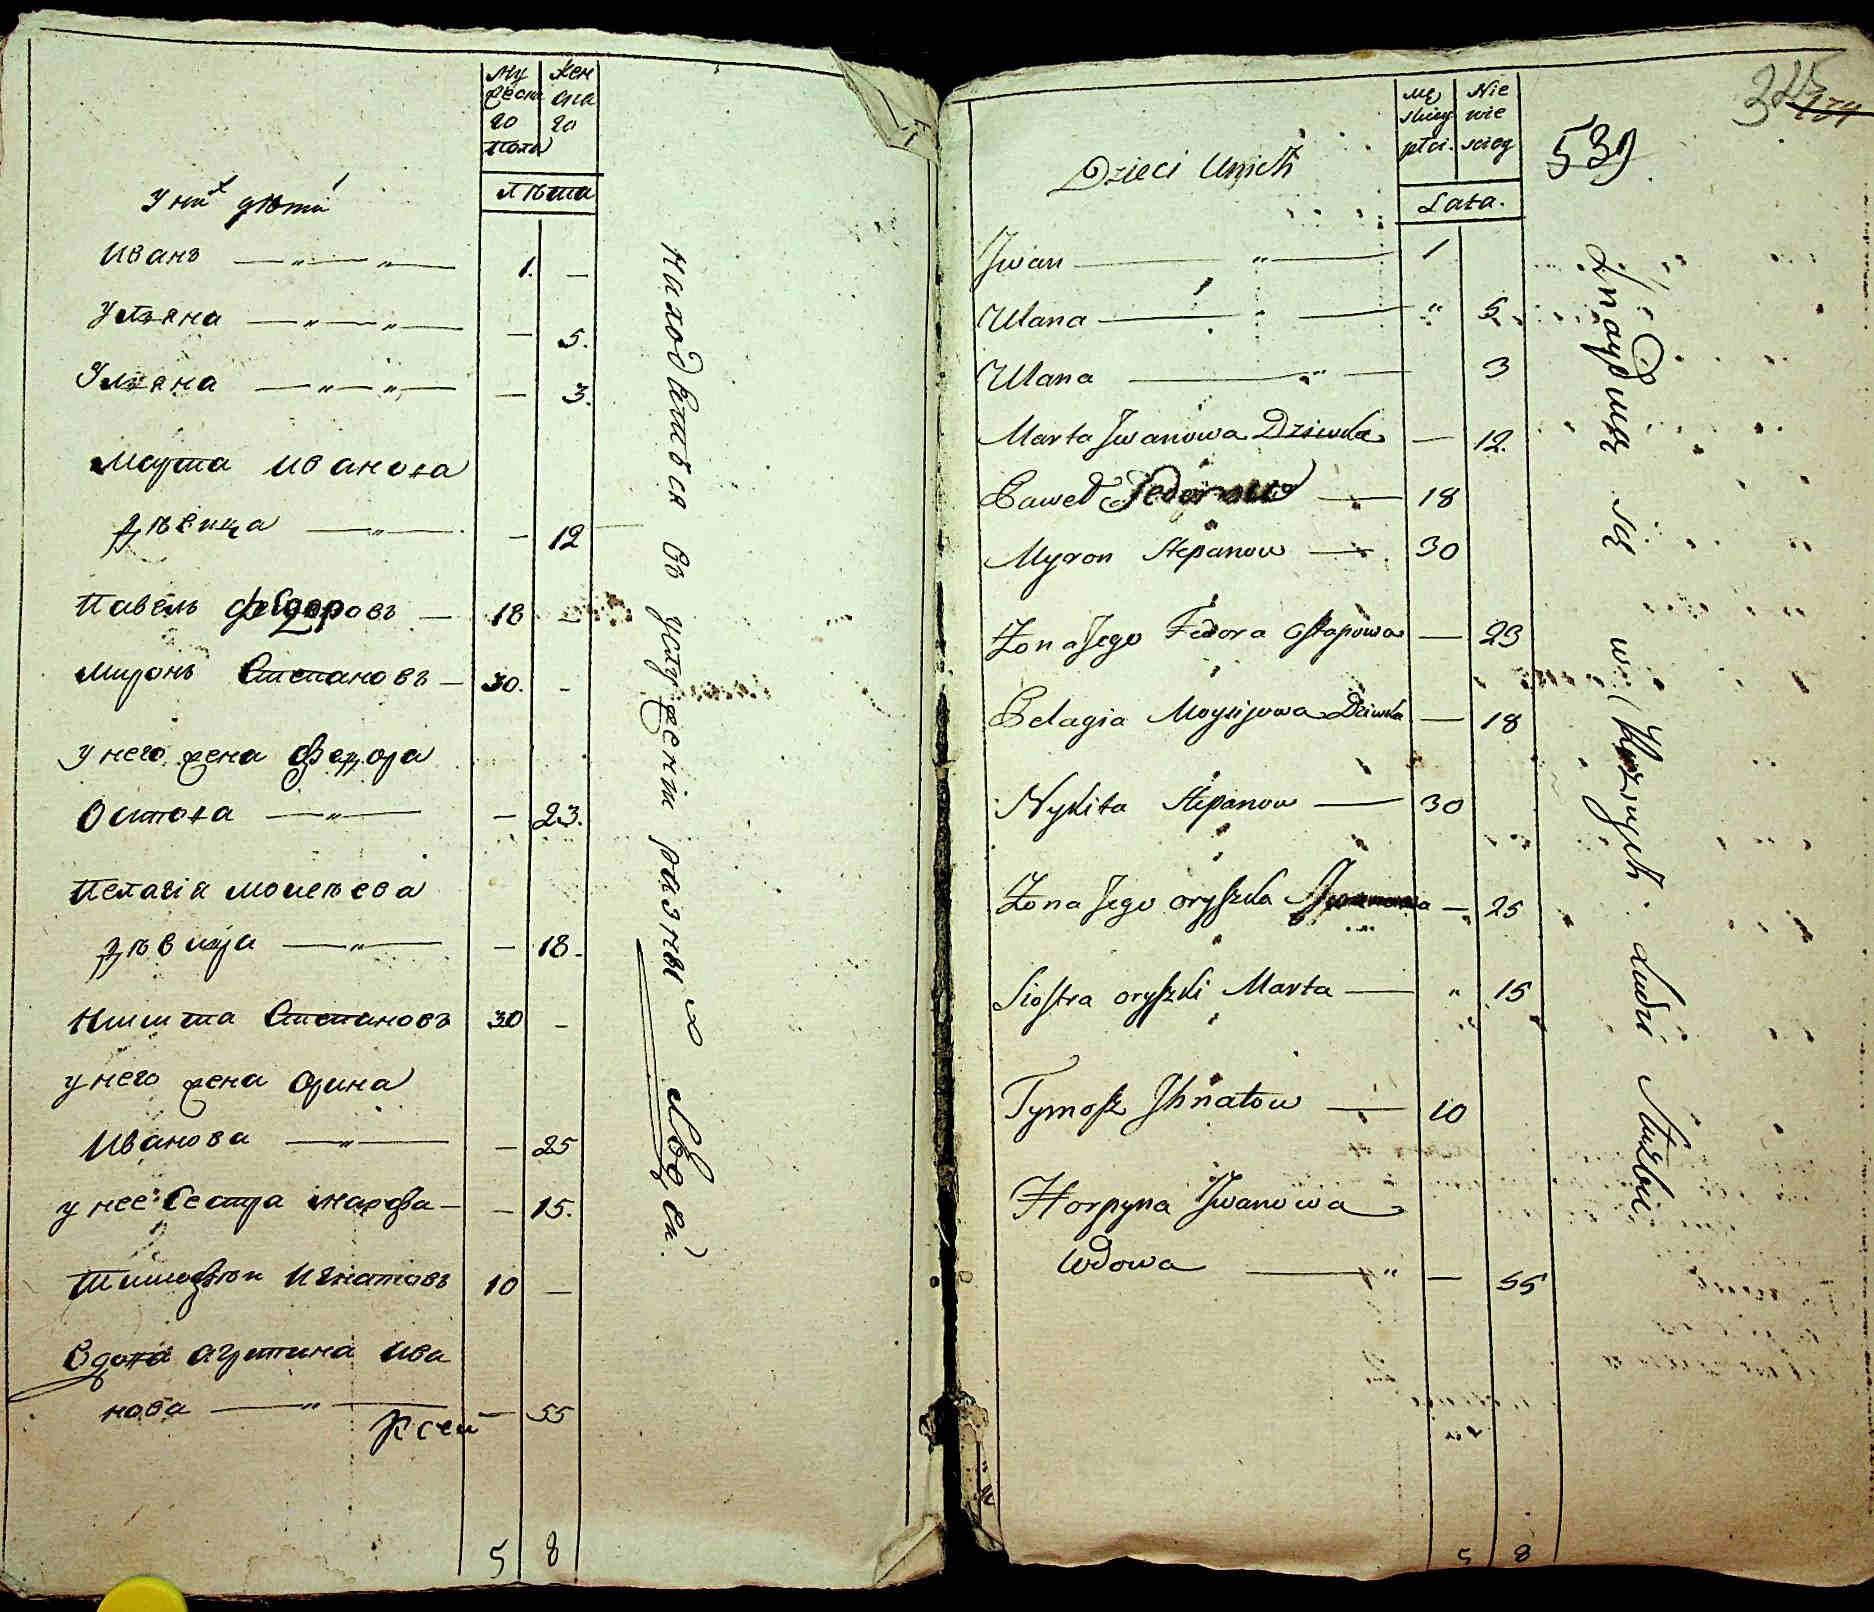 Му жескаго пола
Женскаго
Лѣта
У них дѣти
Иванъ — „ — „ — 1. —
Ульяна — „ — „ — — 5.
Ульяна — „ — „ — — 3.
Марта Иванова
дѣвица — „ — — 12
Павелъ Федоровъ — 18 —
Миронъ Степановъ — 30. —
у него жена Федора
Остапова — „ — — 23.
Пелагія Моисѣева
дѣвица — „ — — 18.
Никита Степановъ 30 —
у него жена Орина
Иванова — „ — — 25
у нее Сестра Марфа — — 15.
Тимофѣй Игнатовъ 10 —
Вдова Агрипина Ива
нова — „ — — 55
Всей
5 8
находятся въ услуженіи разныхъ Людей
325
174
539
Mę skiey płci.
Nie wie sciey
Lata.
Dzieci Unich
Jwan — „ — 1
Ulana — „ — „ 5
Ulana — „ — 3
Marta Jwanowa Dziwka — 12.
Paweł Fedorow — 18
Myron Stepanow — 30
Żona Jego Fedora Ostapowa — 23
Pelagia Moysijowa Dziwka — 18
Nykita Stepanow — 30
Żona Jego oryszka Jwanowa — 25
Siostra oryszki Marta — „ 15
Tymosz Jhnatow — 10
Horpyna Jwanowa
Wdowa — „ — 55
5 8
Znayduią się w Rożnych Ludzi Służbie